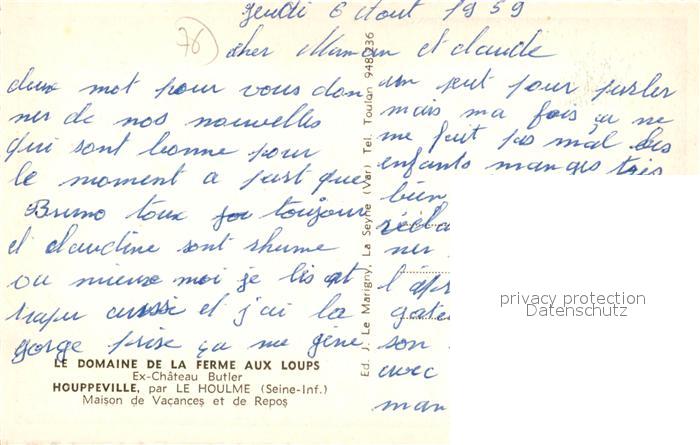 jeudi 6 Aout 1959
76
cher Maman et claude
deux mot pour vous don
ner de nos nouvelles
qui sont bonne pour
le moment a part que
Bruno toux toujour
et claudine sont rhume
ou mieux moi je lis at
traper aussi et j'ai la
gorge prise ça me gène
um peut pour parler
mais ma fois ça ne
me fait pas mal les
enfants manges très
bien
récla
ner
l'apr
gate
son
avec
man
Ed. J. Le Marigny, La Seyne (Var) Tel. Toulon 948.236
LE DOMAINE DE LA FERME AUX LOUPS
Ex-Château Butler
HOUPPEVILLE, par LE HOULME (Seine-Inf.)
Maison de Vacances et de Repos
privacy protection
Datenschutz